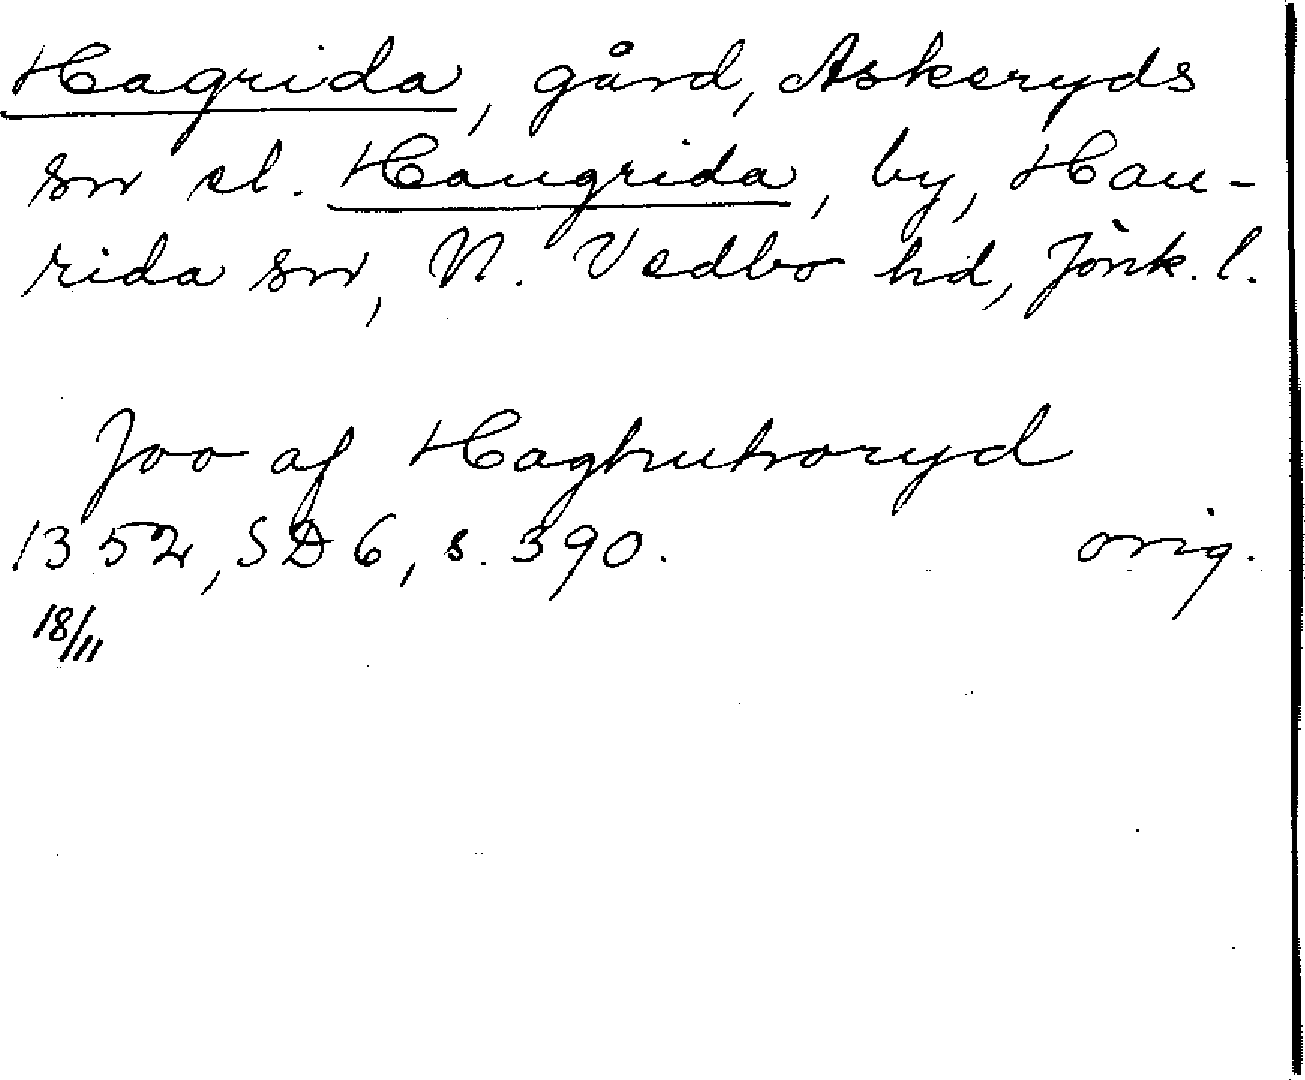 Hagrida, gård, Askeryds
sn el. Haugrida, by, Hau-
rida sn, N. Vedbo hd, Jönk. l.
Joo af Haghuthoryd
1352, SD 6, s. 390. orig.
18/11